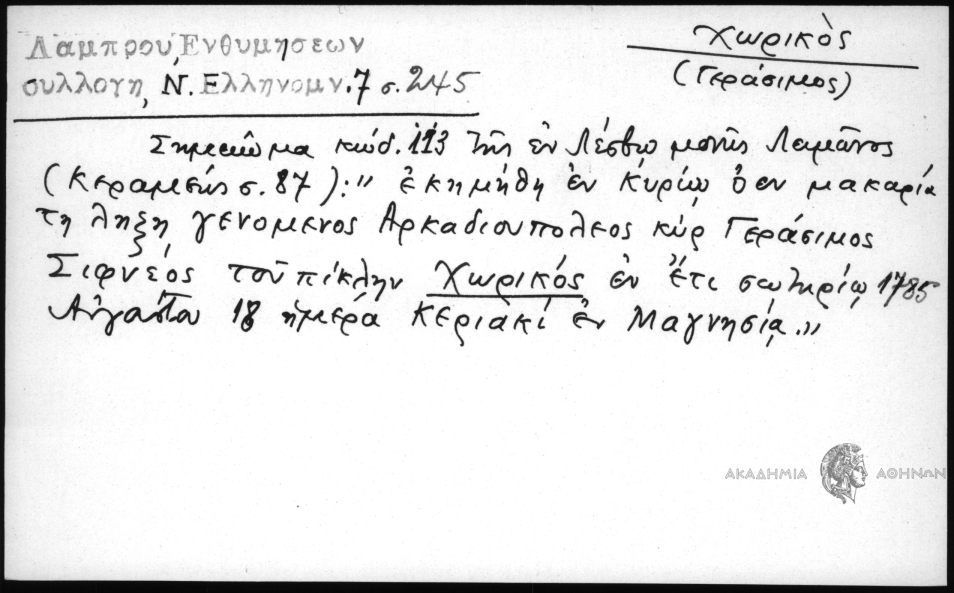 Λαμπρου, Ενθυμησεων
συλλογη, Ν. Ελληνομν. 7 σ. 245
Χωρικὸς
(Γεράσιμος)
Σημείωμα κώδ. 113 τῆς ἐν Λέσβῳ μονῆς Λειμῶνος
(Κεραμεὺς σ. 87): " ἐκημήθη ἐν Κύρίῳ ὁ εν μακαρία
τη ληξη γενομενος Αρκαδιουπολεος κύρ Γεράσιμος
Σιφνεός τοῦπίκλην Χωρικός ἐν ἔτι σωτηρίῳ 1785
Αὐγούστου 18 ἡμερα Κεριακί ἐν Μαγνησίᾳ."
ΑΚΑΔΗΜΙΑ ΑΘΗΝΩΝ